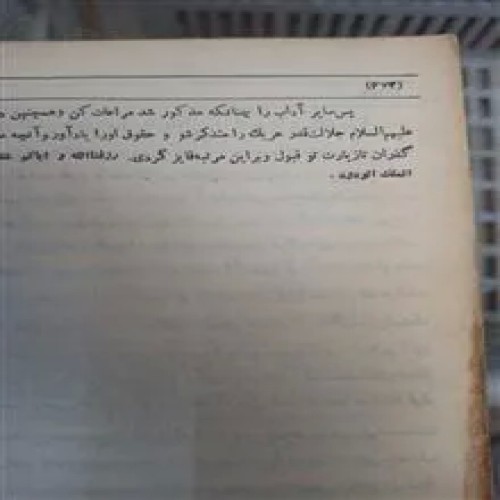 (۶۷۳)
پس سایر آداب را چنانکه مذکور شد مراعات کن و همچنین
علیهم‌السلام جلالت قدر هریک را متذکر شو و حقوق اورا یادآور و آنچه
گفتران تا زیارت تو قبول و براین مرتبه فایز گردی. رزقنا الله و ایاکم
الملک الودود.